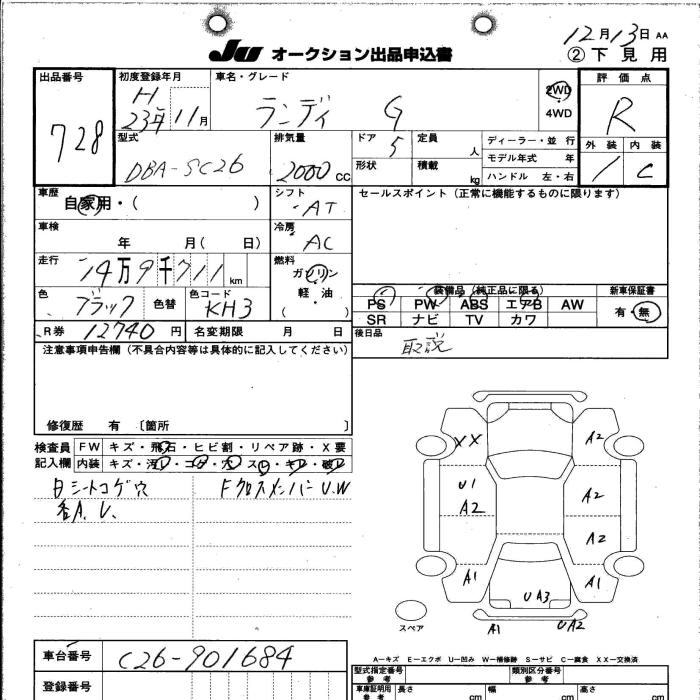 12月13日 AA
JU オークション出品申込書
② 下見用
出品番号
728
初度登録年月
H
23年 11月
車名・グレード
ランディ G
2WD
4WD
評価点
R
外装 内装
1 C
型式
DBA-SC26
排気量
2000 cc
ドア
5
定員
人
形状
積載
kg
ディーラー・並行
モデル年式 年
ハンドル 左・右
車歴
自家用・( )
シフト
AT
セールスポイント(正常に機能するものに限ります)
車検
年 月( 日)
冷房
AC
走行
14万9千711 km
燃料
ガソリン
軽・油
( )
色
ブラック
色替
色コード
KH3
装備品(純正品に限る)
PS PW ABS エアB AW
SR ナビ TV カワ
新車保証書
有・無
R券 12740 円
名変期限 月 日
後日品
取説
注意事項申告欄(不具合内容等は具体的に記入してください)
修復歴 有 〔箇所 〕
検査員
記入欄
FW キズ・飛石・ヒビ割・リペア跡・X要
内装 キズ・汚レ・コゲ・穴・スレ・キレ・破レ
内シートコゲ穴
各A.U.
FクロスメンバーU.W
XX
A2
U1
A2
A2
A2
A1
A1
UA3
A1
UA2
スペア
A-キズ E-エクボ U-凹み W-補修跡 S-サビ C-腐食 XX-交換済
車台番号
C26-901684
登録番号
型式指定番号
参考
類別区分番号
参考
車庫証明用
参考
長さ
cm
幅
cm
高さ
cm